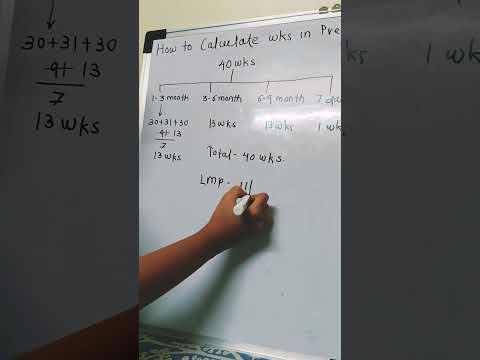 How to Calculate wks in Pre
40 wks
1-3 month 3-6 month 6-9 month 7 days
30+31+30 13 wks 13 wks 1 wk
91 ÷ 13
7
13 wks Total- 40 wks.
Lmp -
30+31+30
91 ÷ 13
7
13 wks
1 wk